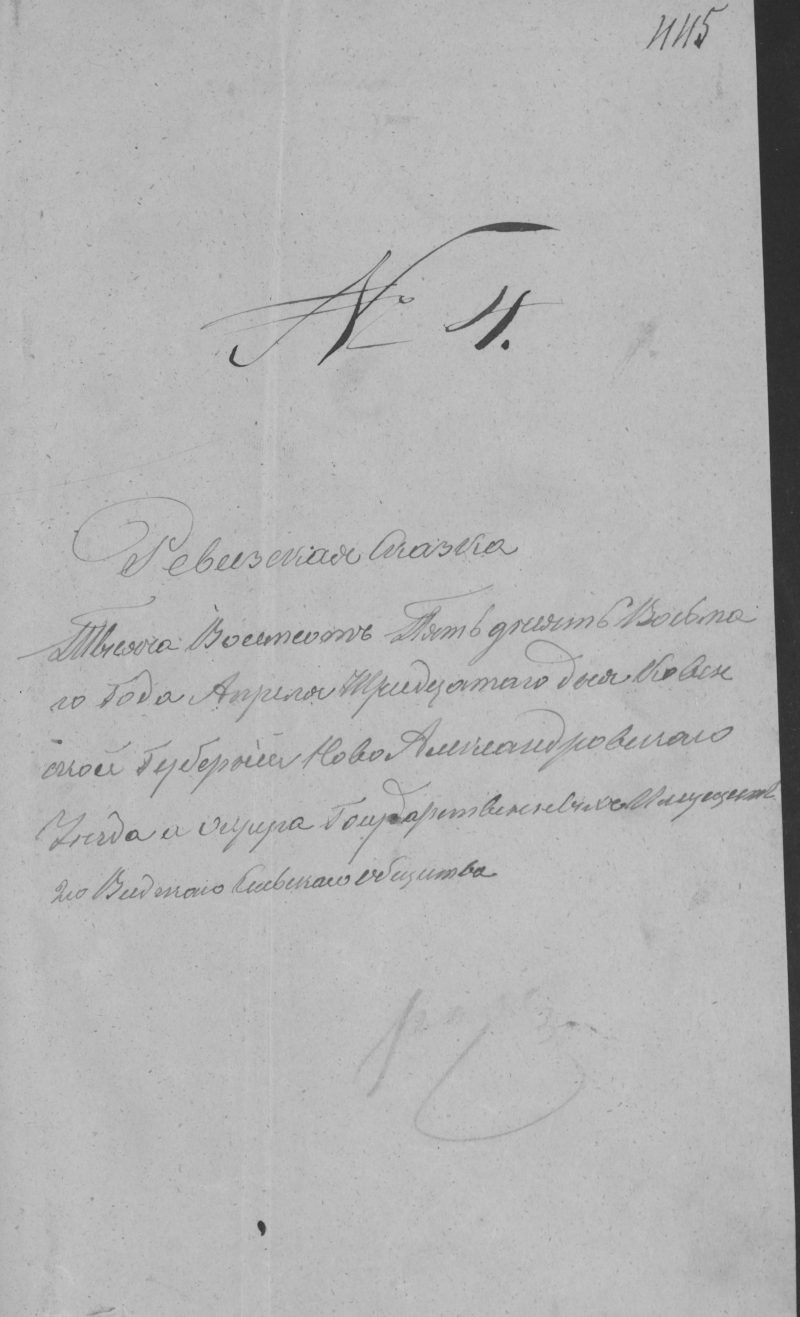 445
№ 4.
Ревизская Сказка
Тысяча Восемсотъ Пятьдесятъ Восьма
го Года Апреля Тридцатаго дня Ковен
ской Губерніи Ново Александровскаго
Уезда и округа Государственныхъ Имуществъ
2го Видзкаго Сельскаго общества